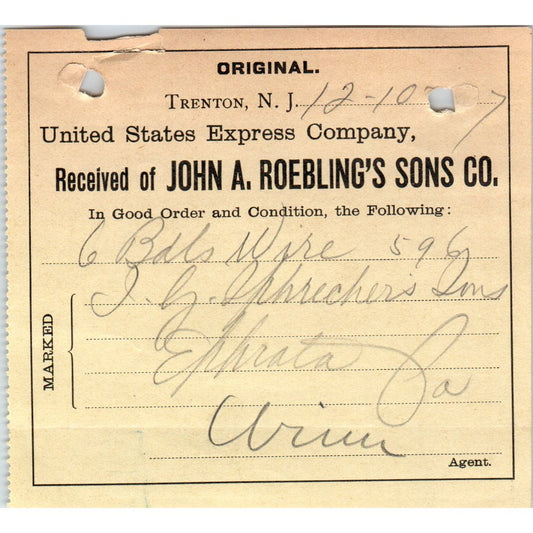 ORIGINAL.
TRENTON, N. J. 12-10-07
United States Express Company,
Received of JOHN A. ROEBLING'S SONS CO.
In Good Order and Condition, the Following:
6 Bdls Wire 596
MARKED
Sons
Ephrata Pa
Agent.